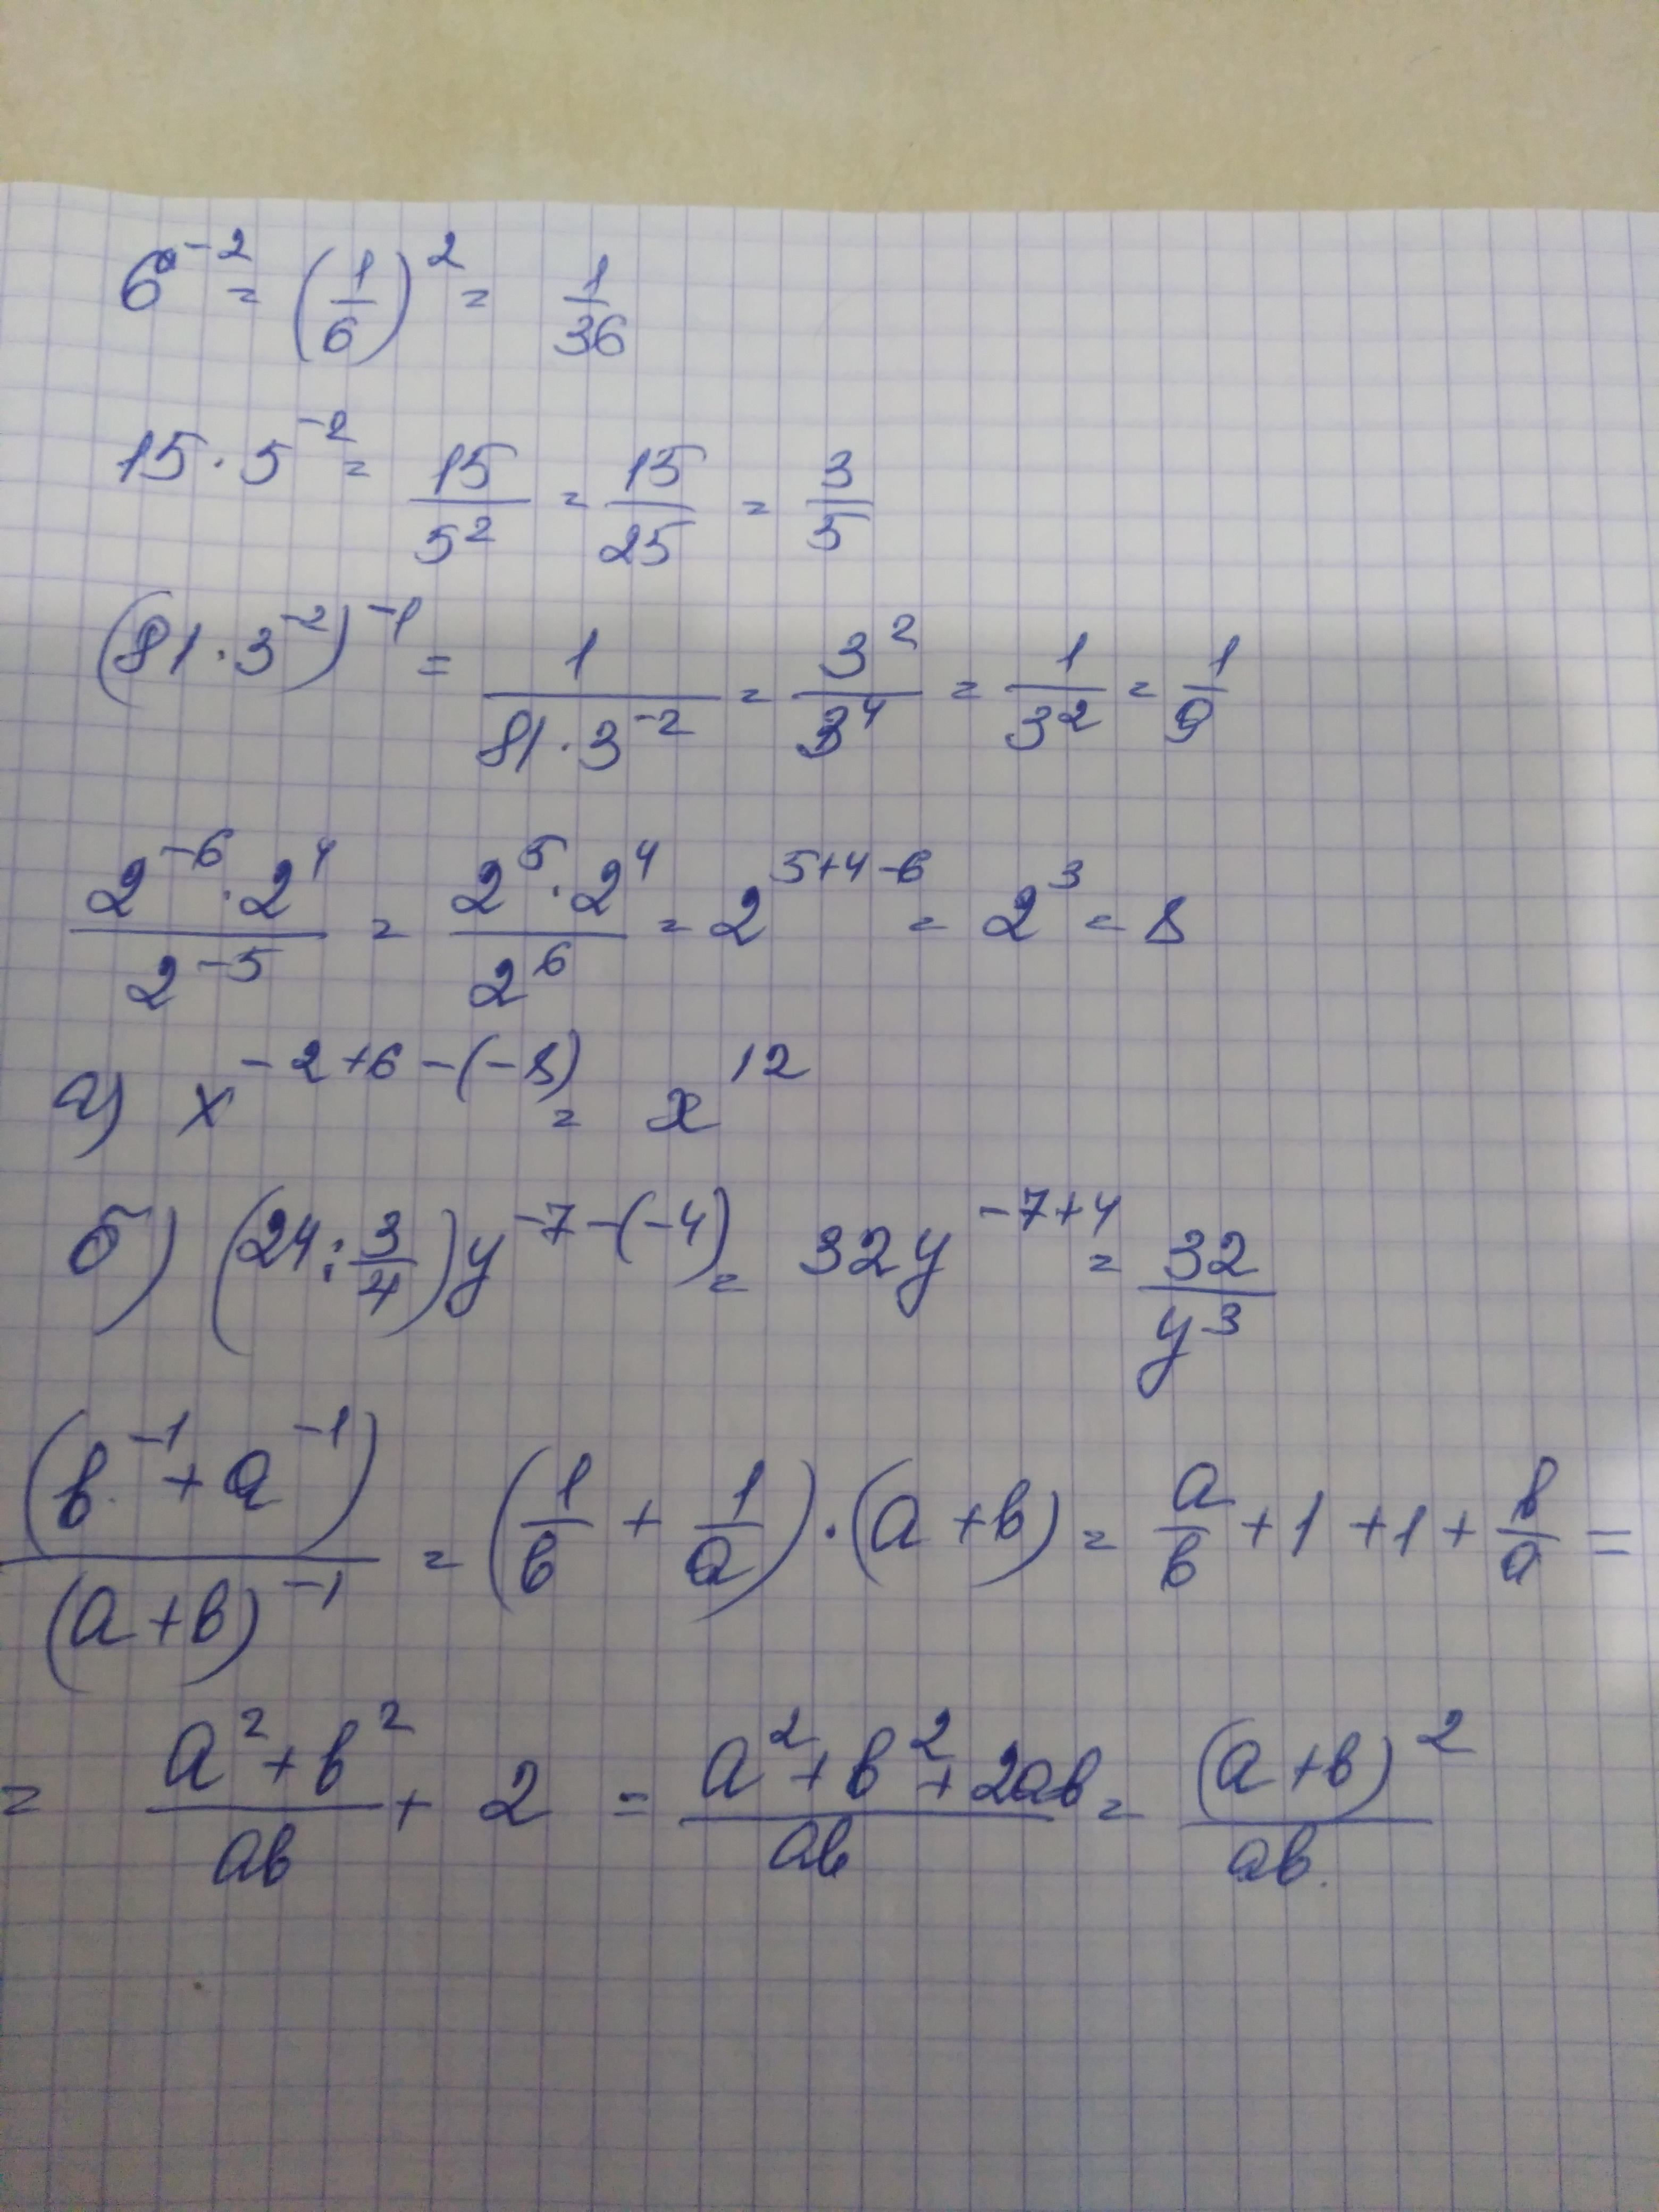 6⁻² = (1/6)² = 1/36
15 · 5⁻² = 15/5² = 15/25 = 3/5
(81 · 3⁻²)⁻¹ = 1/(81 · 3⁻²) = 3²/3⁴ = 1/3² = 1/9
(2⁻⁶ · 2⁴)/2⁻⁵ = (2⁵ · 2⁴)/2⁶ = 2⁵⁺⁴⁻⁶ = 2³ = 8
а) x^(-2+6-(-8)) = x¹²
б) (24 : 3/4)y^(-7-(-4)) = 32y^(-7+4) = 32/y³
(b⁻¹ + a⁻¹)/(a+b)⁻¹ = (1/b + 1/a) · (a+b) = a/b + 1 + 1 + b/a =
= (a² + b²)/ab + 2 = (a² + b² + 2ab)/ab = (a+b)²/ab.